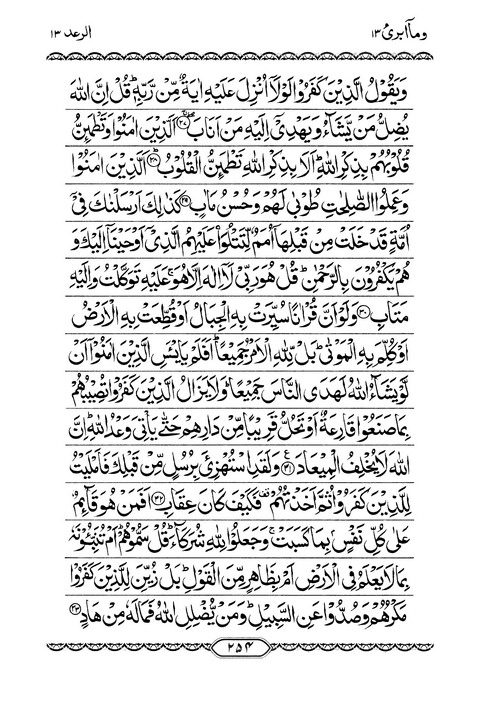 ومآ ابرئ ١٣
الرعد ١٣
وَيَقُوْلُ الَّذِيْنَ كَفَرُوْا لَوْلَاۤ اُنْزِلَ عَلَيْهِ اٰيَةٌ مِّنْ رَّبِّهٖ ؕ قُلْ اِنَّ اللّٰهَ
يُضِلُّ مَنْ يَّشَآءُ وَيَهْدِىْۤ اِلَيْهِ مَنْ اَنَابَ ۖۚ ﴿۲۷﴾ اَلَّذِيْنَ اٰمَنُوْا وَتَطْمَئِنُّ
قُلُوْبُهُمْ بِذِكْرِ اللّٰهِ ؕ اَلَا بِذِكْرِ اللّٰهِ تَطْمَئِنُّ الْقُلُوْبُ ؕ ﴿۲۸﴾ اَلَّذِيْنَ اٰمَنُوْا
وَعَمِلُوا الصّٰلِحٰتِ طُوْبٰى لَهُمْ وَحُسْنُ مَاٰبٍ ﴿۲۹﴾ كَذٰلِكَ اَرْسَلْنٰكَ فِىْۤ
اُمَّةٍ قَدْ خَلَتْ مِنْ قَبْلِهَاۤ اُمَمٌ لِّتَتْلُوَا۟ عَلَيْهِمُ الَّذِىْۤ اَوْحَيْنَاۤ اِلَيْكَ وَ
هُمْ يَكْفُرُوْنَ بِالرَّحْمٰنِ ؕ قُلْ هُوَ رَبِّىْ لَاۤ اِلٰهَ اِلَّا هُوَ ۚ عَلَيْهِ تَوَكَّلْتُ وَاِلَيْهِ
مَتَابِ ﴿۳۰﴾ وَلَوْ اَنَّ قُرْاٰنًا سُيِّرَتْ بِهِ الْجِبَالُ اَوْ قُطِّعَتْ بِهِ الْاَرْضُ
اَوْ كُلِّمَ بِهِ الْمَوْتٰى ؕ بَلْ لِّلّٰهِ الْاَمْرُ جَمِيْعًا ؕ اَفَلَمْ يَايْـَٔسِ الَّذِيْنَ اٰمَنُوْۤا اَنْ
لَّوْ يَشَآءُ اللّٰهُ لَهَدَى النَّاسَ جَمِيْعًا ؕ وَلَا يَزَالُ الَّذِيْنَ كَفَرُوْا تُصِيْبُهُمْ
بِمَا صَنَعُوْا قَارِعَةٌ اَوْ تَحُلُّ قَرِيْبًا مِّنْ دَارِهِمْ حَتّٰى يَاْتِىَ وَعْدُ اللّٰهِ ؕ اِنَّ
اللّٰهَ لَا يُخْلِفُ الْمِيْعَادَ ﴿۳۱﴾ وَلَقَدِ اسْتُهْزِئَ بِرُسُلٍ مِّنْ قَبْلِكَ فَاَمْلَيْتُ
لِلَّذِيْنَ كَفَرُوْا ثُمَّ اَخَذْتُهُمْ ۟ فَكَيْفَ كَانَ عِقَابِ ﴿۳۲﴾ اَفَمَنْ هُوَ قَآئِمٌ
عَلٰى كُلِّ نَفْسٍۭ بِمَا كَسَبَتْ ۚ وَجَعَلُوْا لِلّٰهِ شُرَكَآءَ ؕ قُلْ سَمُّوْهُمْ ؕ اَمْ تُنَبِّـُٔوْنَهٗ
بِمَا لَا يَعْلَمُ فِى الْاَرْضِ اَمْ بِظَاهِرٍ مِّنَ الْقَوْلِ ؕ بَلْ زُيِّنَ لِلَّذِيْنَ كَفَرُوْا
مَكْرُهُمْ وَصُدُّوْا عَنِ السَّبِيْلِ ؕ وَمَنْ يُّضْلِلِ اللّٰهُ فَمَا لَهٗ مِنْ هَادٍ ﴿۳۳﴾
۲۵۴